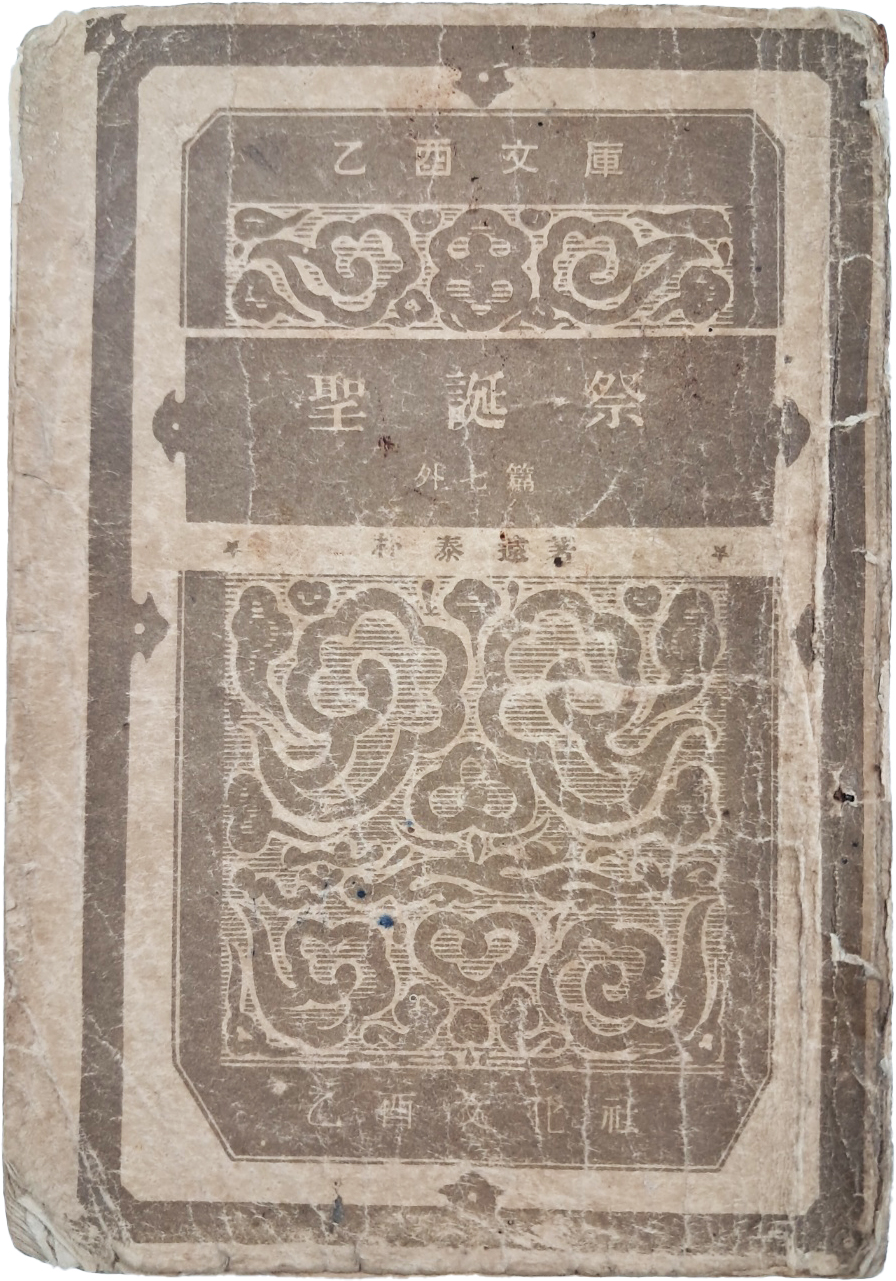 乙酉文庫
聖誕祭
外七篇
朴泰遠著
乙酉文化社